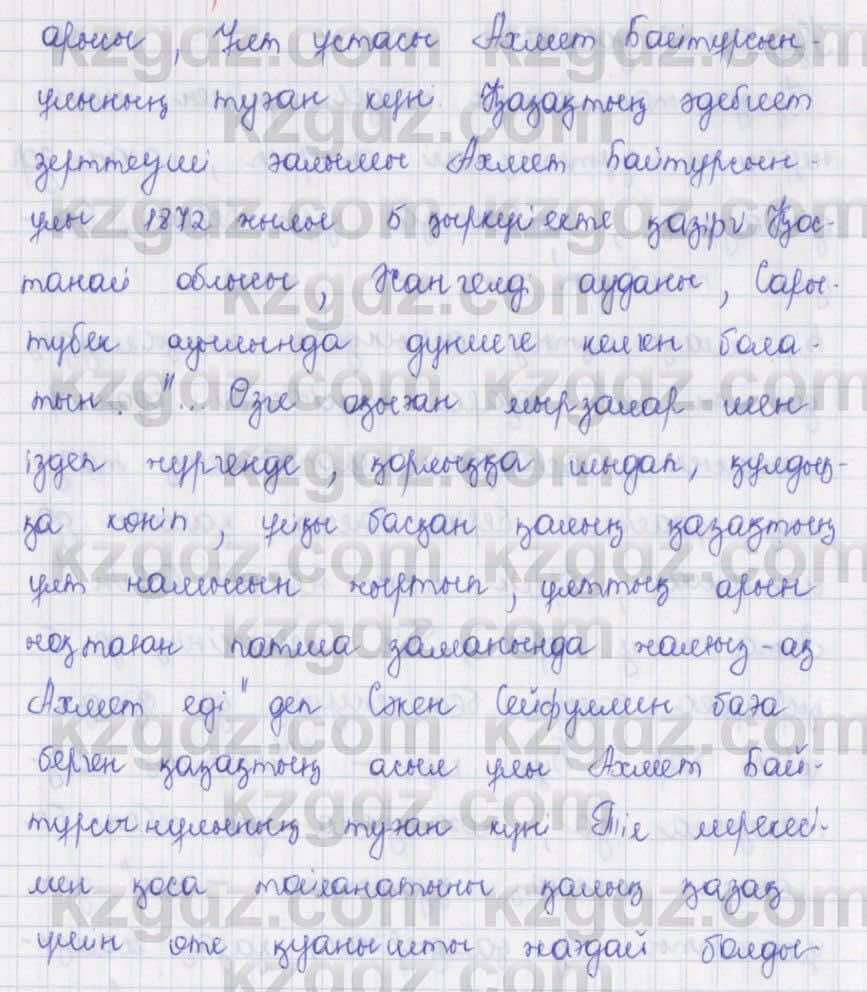 арысы, Ұлт ұстасы Ахмет Байтұрсын-
ұлының туған күні Қазақтың әдебиет
зерттеуші ғалымы Ахмет Байтұрсын-
ұлы 1872 жылы 5 қыркүйекте қазіргі Қос-
танай облысы, Жангелді ауданы, Сары-
түбек ауылында дүниеге келген бола-
тын. "... Өзге оқыған мырзалар шен
іздеп жүргенде, қорлыққа шыдап, құлдық-
қа көніп, ұйқы басқан қалың қазақтың
ұлт намысын жыртып, ұлттың арын
жоқтаған патша заманында жалғыз-ақ
Ахмет еді" деп Сәкен Сейфуллин баға
берген қазақтың асыл ұлы Ахмет Бай-
тұрсынұлының туған күні Тіл мерекесі-
мен қоса тойланатыны қалың қазақ
үшін өте қуанышты жағдай болды-